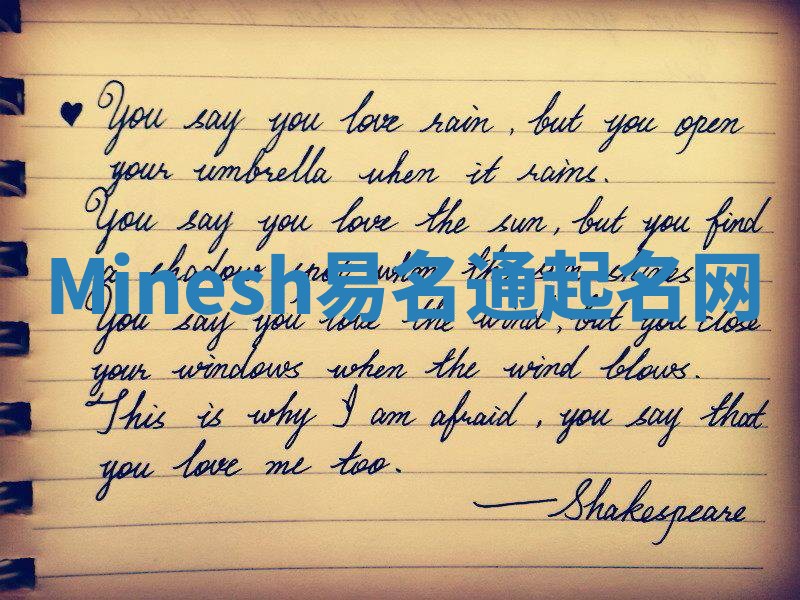 ♥ You say you love rain, but you open
your umbrella when it rains.
You say you love the sun, but you find
a shadow spot when the sun shines
Minesh易名通起名网
You say you love the wind, but you close
your windows when the wind blows.
This is why I am afraid, you say that
you love me too.
— Shakespeare